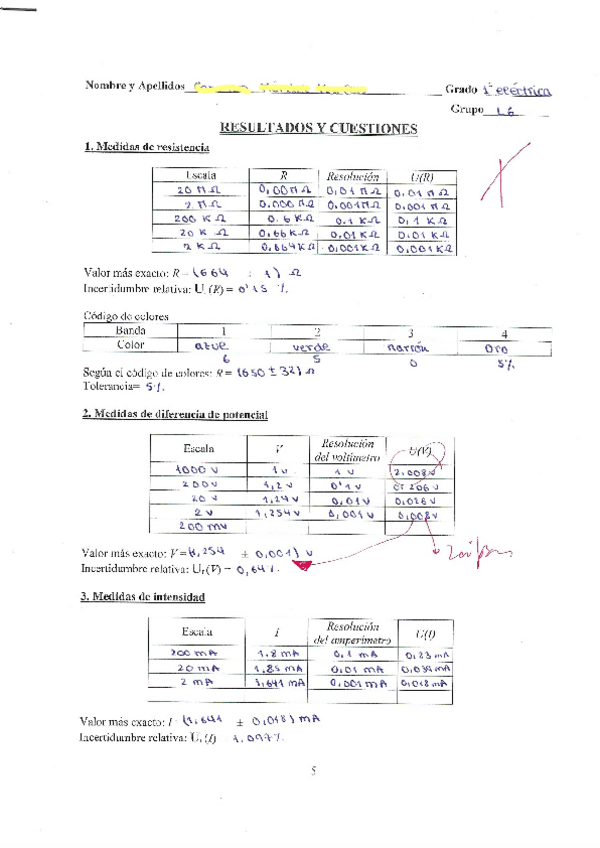 Nombre y Apellidos Grado 1º eléctrica
Grupo L6
RESULTADOS Y CUESTIONES
1. Medidas de resistencia
Escala R Resolución U(R)
20 MΩ 0,00MΩ 0,01MΩ 0,01 MΩ
2 MΩ 0.000 MΩ 0.001MΩ 0.001 MΩ
200 KΩ 0.6 KΩ 0.1 KΩ 0,1 KΩ
20 K Ω 0,66KΩ 0.01KΩ 0.01 KΩ
2 KΩ 0.664KΩ 0,001KΩ 0,001KΩ
Valor más exacto: R = (664 ± 1) Ω
Incertidumbre relativa: Ur(R) = 0'15 %
Código de colores
Banda 1 2 3 4
Color azul verde marrón oro
6 5 0 5%
Según el código de colores: R = (650 ± 32) Ω
Tolerancia= 5%
2. Medidas de diferencia de potencial
Escala V Resolución del voltímetro U(V)
1000 V 1 V 1 V 2.008V
200V 1,2 V 0'1 V 0.206 V
20 V 1,24V 0,01V 0,026V
2 V 1,254V 0,001 V 0,008V
200 mV
Valor más exacto: V = (1,254 ± 0,001) V
Incertidumbre relativa: Ur(V) = 0,64%
3. Medidas de intensidad
Escala I Resolución del amperímetro U(I)
200 mA 1,8 mA 0,1 mA 0,23 mA
20 mA 1,85 mA 0,01 mA 0,034mA
2 mA 1,641 mA 0,001 mA 0,018 mA
Valor más exacto: I = (1,641 ± 0,018) mA
Incertidumbre relativa: Ur(I) = 1,097%
5